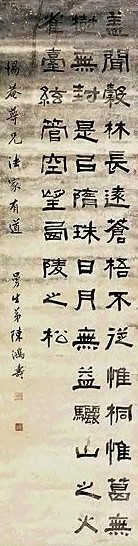 蓋聞穀林長遠蒼梧不從惟桐惟葛無
樹無封是㠯隋珠日月無益驪山之火
雀臺絃管空望西陵之松
尊兄法家有道 曼生弟陳鴻壽